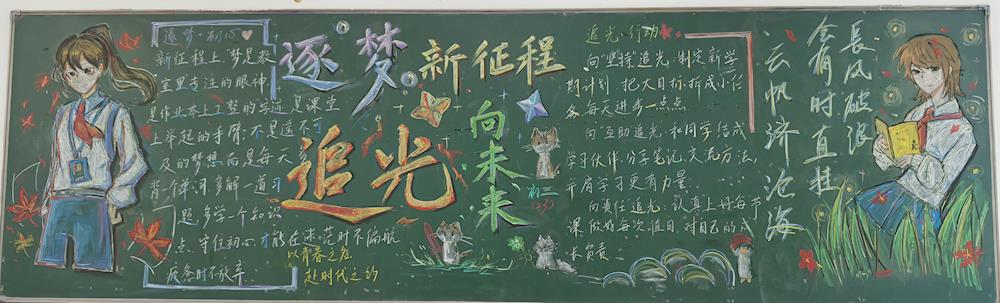 逐梦·初心
新征程上,梦是教
室里专注的眼神,
是作业本上工整的字迹,是课堂
上举起的手臂;不是遥不可
及的梦想,而是每天多
背一个单词,多解一道习
题,多学一个知识
点,守住初心,才能在迷茫时不偏航,
疲惫时不放弃。
逐梦。新征程
追光
向未来
以青春之名
赴时代之约
初三
(23)
追光·行动
向"坚持"追光:制定新学
期计划,把大目标拆成小任
务,每天进步一点点
向"互助追光":和同学结成
学习伙伴,分享笔记,交流方法,
并肩学习更有力量。
向责任追光:认真上好每节
课,做好每次值日,对自己的成
长负责。
长风破浪
会有时直挂
云帆济沧海